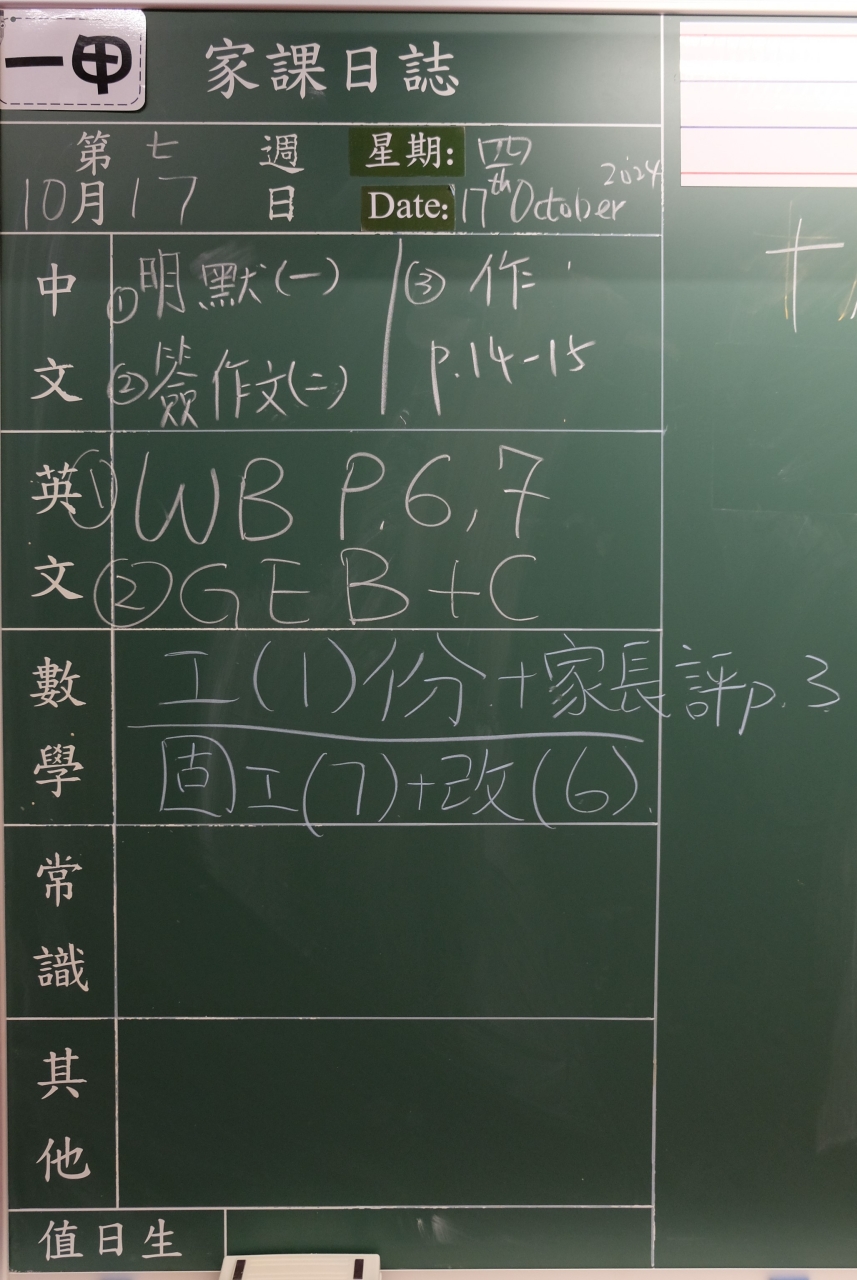 一甲
家課日誌
第 七 週 星期: 四
10月17日 Date: 17th October 2024
中文
①明默(一)
②簽作文(二)
③作
p.14-15
英文
①WB P.6,7
②GE B+C
數學
工(1)份+家長評p.3
固工(7)+改(6).
常識
其他
值日生